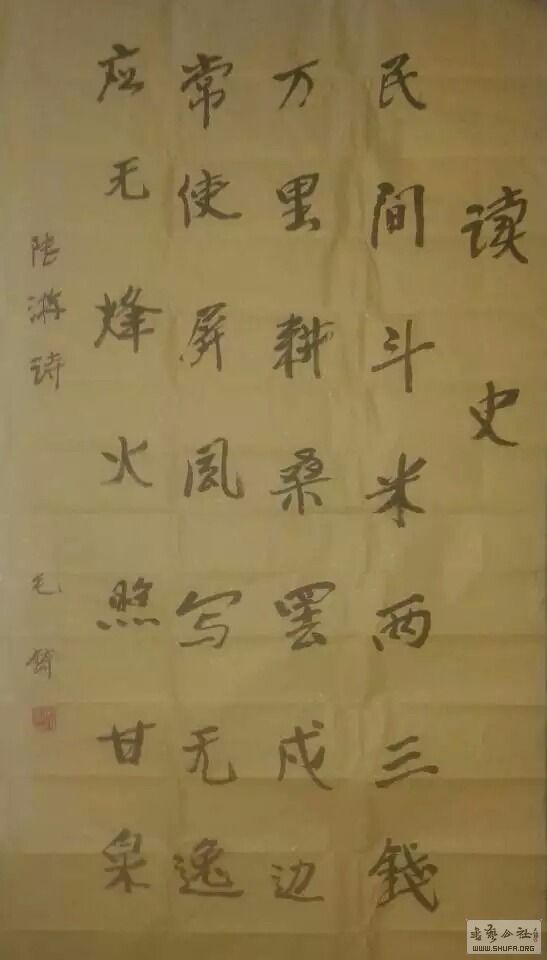 读史
民间斗米两三錢
万里耕桑罢戍边
常使屏风写无逸
应无烽火照甘泉
陆游诗
毛
书艺公社
WWW.SHUFA.ORG